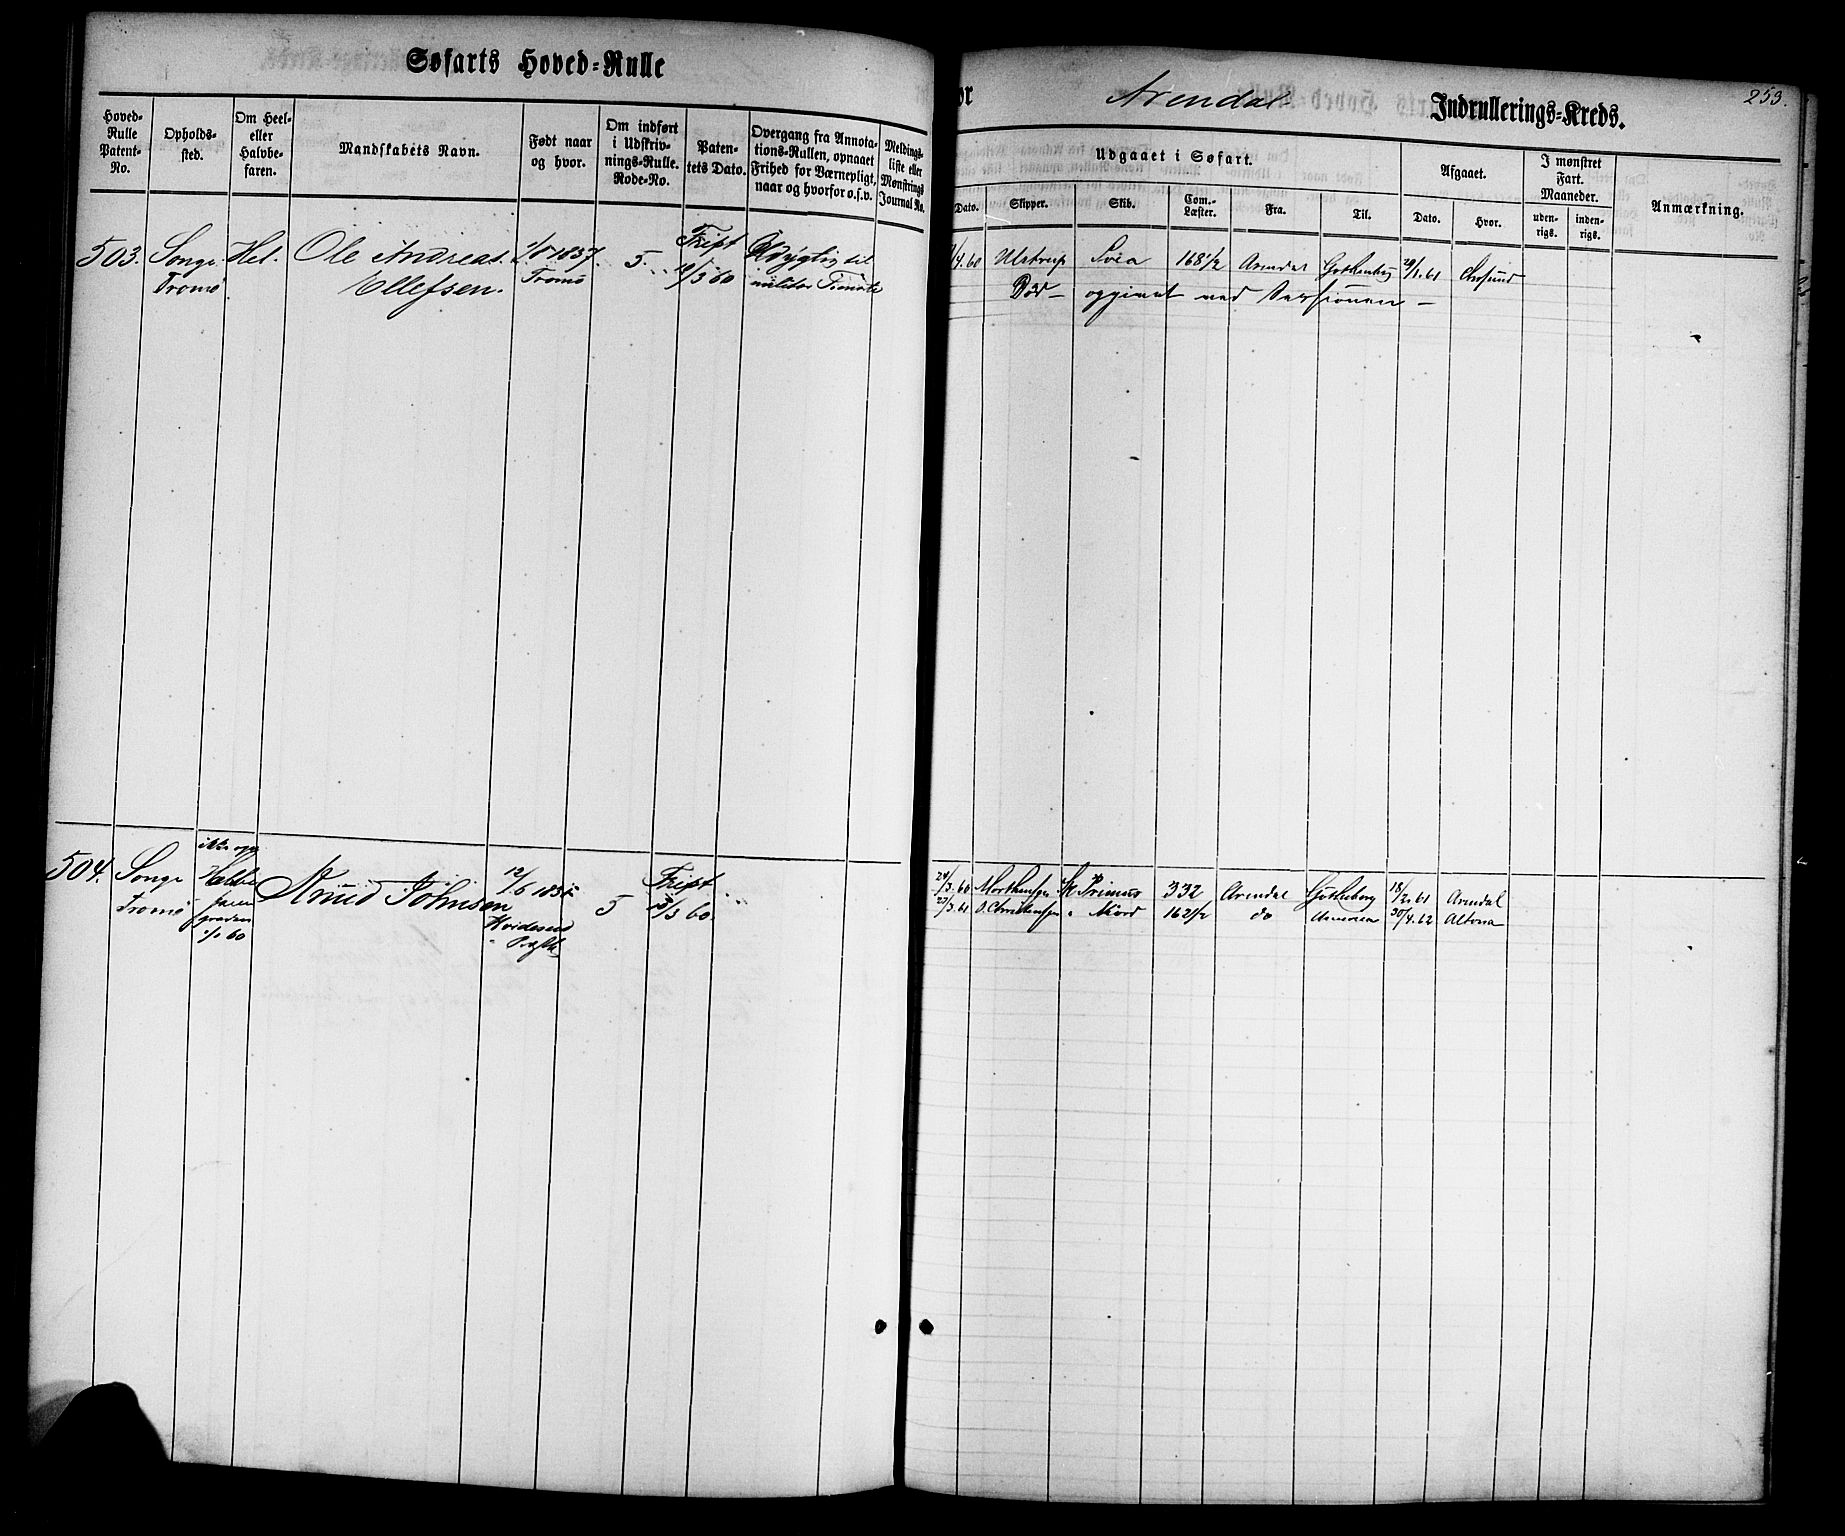 Søfarts Hoved-Rulle
for Arendal Indrullerings-Kreds.
253.
Hoved-
Rulle
Patent-
No.
Opholds-
sted.
Om Heel-
eller
Halvbe-
faren.
Mandskabets Navn.
Født naar
og hvor.
Om indført
i Udskriv-
nings-Rulle.
Rode-No.
Paten-
tets Dato.
Overgang fra Annota-
tions-Rullen, opnaaet
Frihed for Værnepligt,
naar og hvorfor o.s.v.
Meldings-
liste eller
Mønstrings
Journal No.
Udgaaet i Søfart.
Dato.
Skipper.
Skib.
Com.-
Læster.
Fra.
Til.
Afgaaet.
Dato.
Hvor.
I mønstret
Fart.
Maaneder.
uden-
rigs.
inden-
rigs.
Anmærkning.
503. Songe Hel. Ole Andreas 1837. 5 Fript Udygtig til
Tromø Ellefsen. Tromø 10/3 60 militær Tieneste
/4. 60 Ulstrup Svea 168 1/2 Arendal Gothenborg 20/1. 61
Død - opgivet ved Sessionen -
504. Songe Halvbe Knud Johnsen 12/6 1835 5 Fript
Tromø faren
graden
60
Hvidesed
Præstk
10/3 60.
24/3. 60 Morthensen Sk Primus 332 Arendal Gothenborg 18/2. 61 Arendal
23/3. 61 O. Christensen " Nord 162 1/2 do America 30/4. 62 Altona